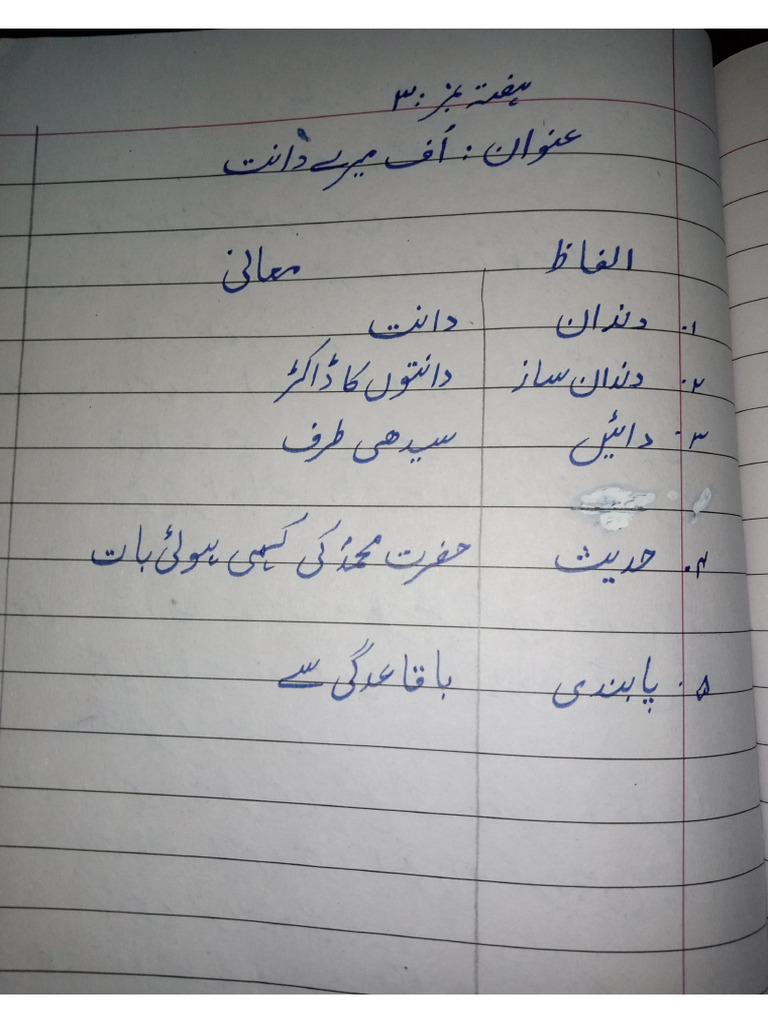 ہفتہ نمبر :۳
عنوان : اُف میرے دانت
الفاظ معانی
۱. دندان دانت
۲. دندان ساز دانتوں کا ڈاکٹر
۳. دائیں سیدھی طرف
۴. حدیث حضرت محمدؐ کی کہی ہوئی بات
۵. پابندی باقاعدگی سے